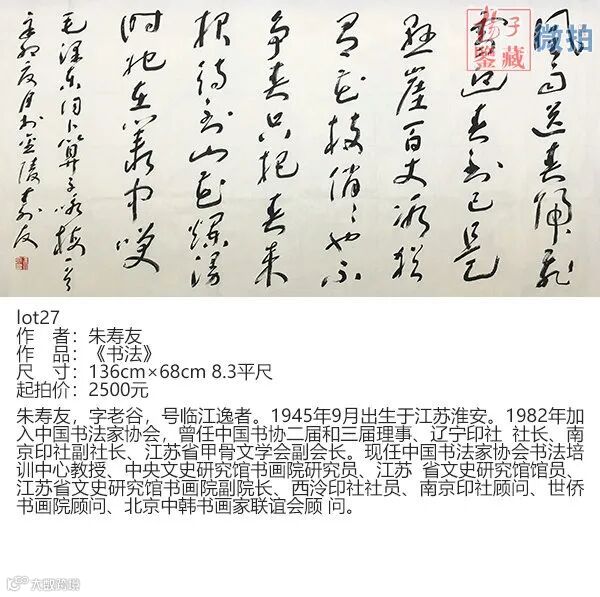 風雨送春歸飛
雪迎春到已是
懸崖百丈冰猶
有花枝俏俏也不
争春只把春来
报待到山花爛漫
時她在叢中咲
毛澤东词卜算子咏梅一首
辛卯夏月於金陵寿友
揚子
鑒藏
微拍
lot27
作 者：朱寿友
作 品：《书法》
尺 寸：136cm×68cm 8.3平尺
起拍价：2500元
朱寿友，字老谷，号临江逸者。1945年9月出生于江苏淮安。1982年加
入中国书法家协会，曾任中国书协二届和三届理事、辽宁印社 社长、南
京印社副社长、江苏省甲骨文学会副会长。现任中国书法家协会书法培
训中心教授、中央文史研究馆书画院研究员、江苏 省文史研究馆馆员、
江苏省文史研究馆书画院副院长、西泠印社社员、南京印社顾问、世侨
书画院顾问、北京中韩书画家联谊会顾 问。